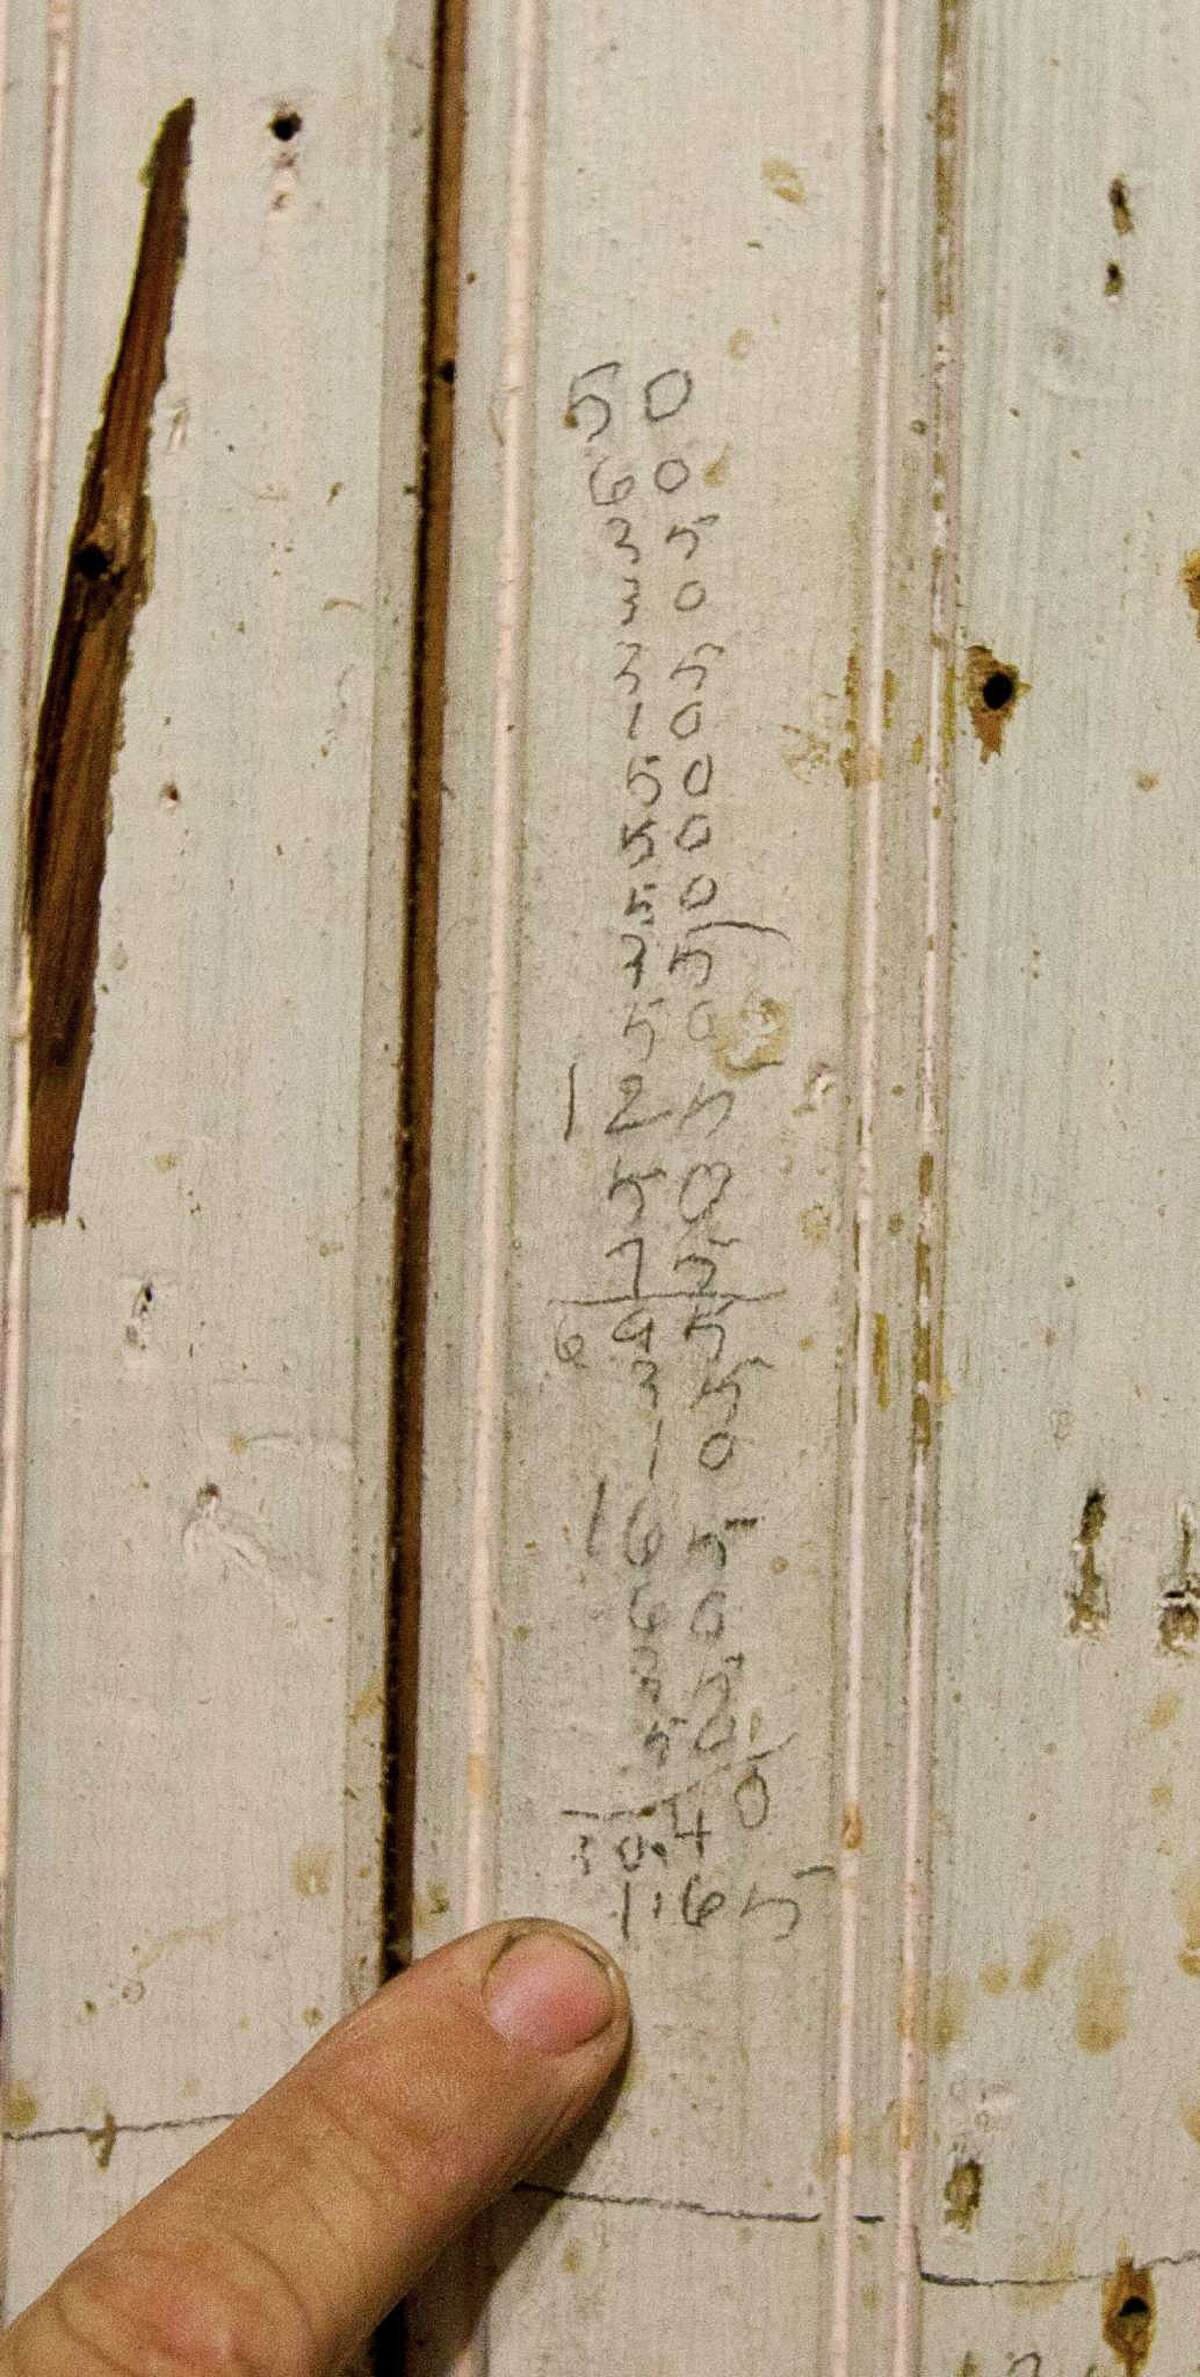 50
60
35
30
35
10
50
50
50
35
50
125
50
75
695
35
10
165
60
35
50
30.40
1.65